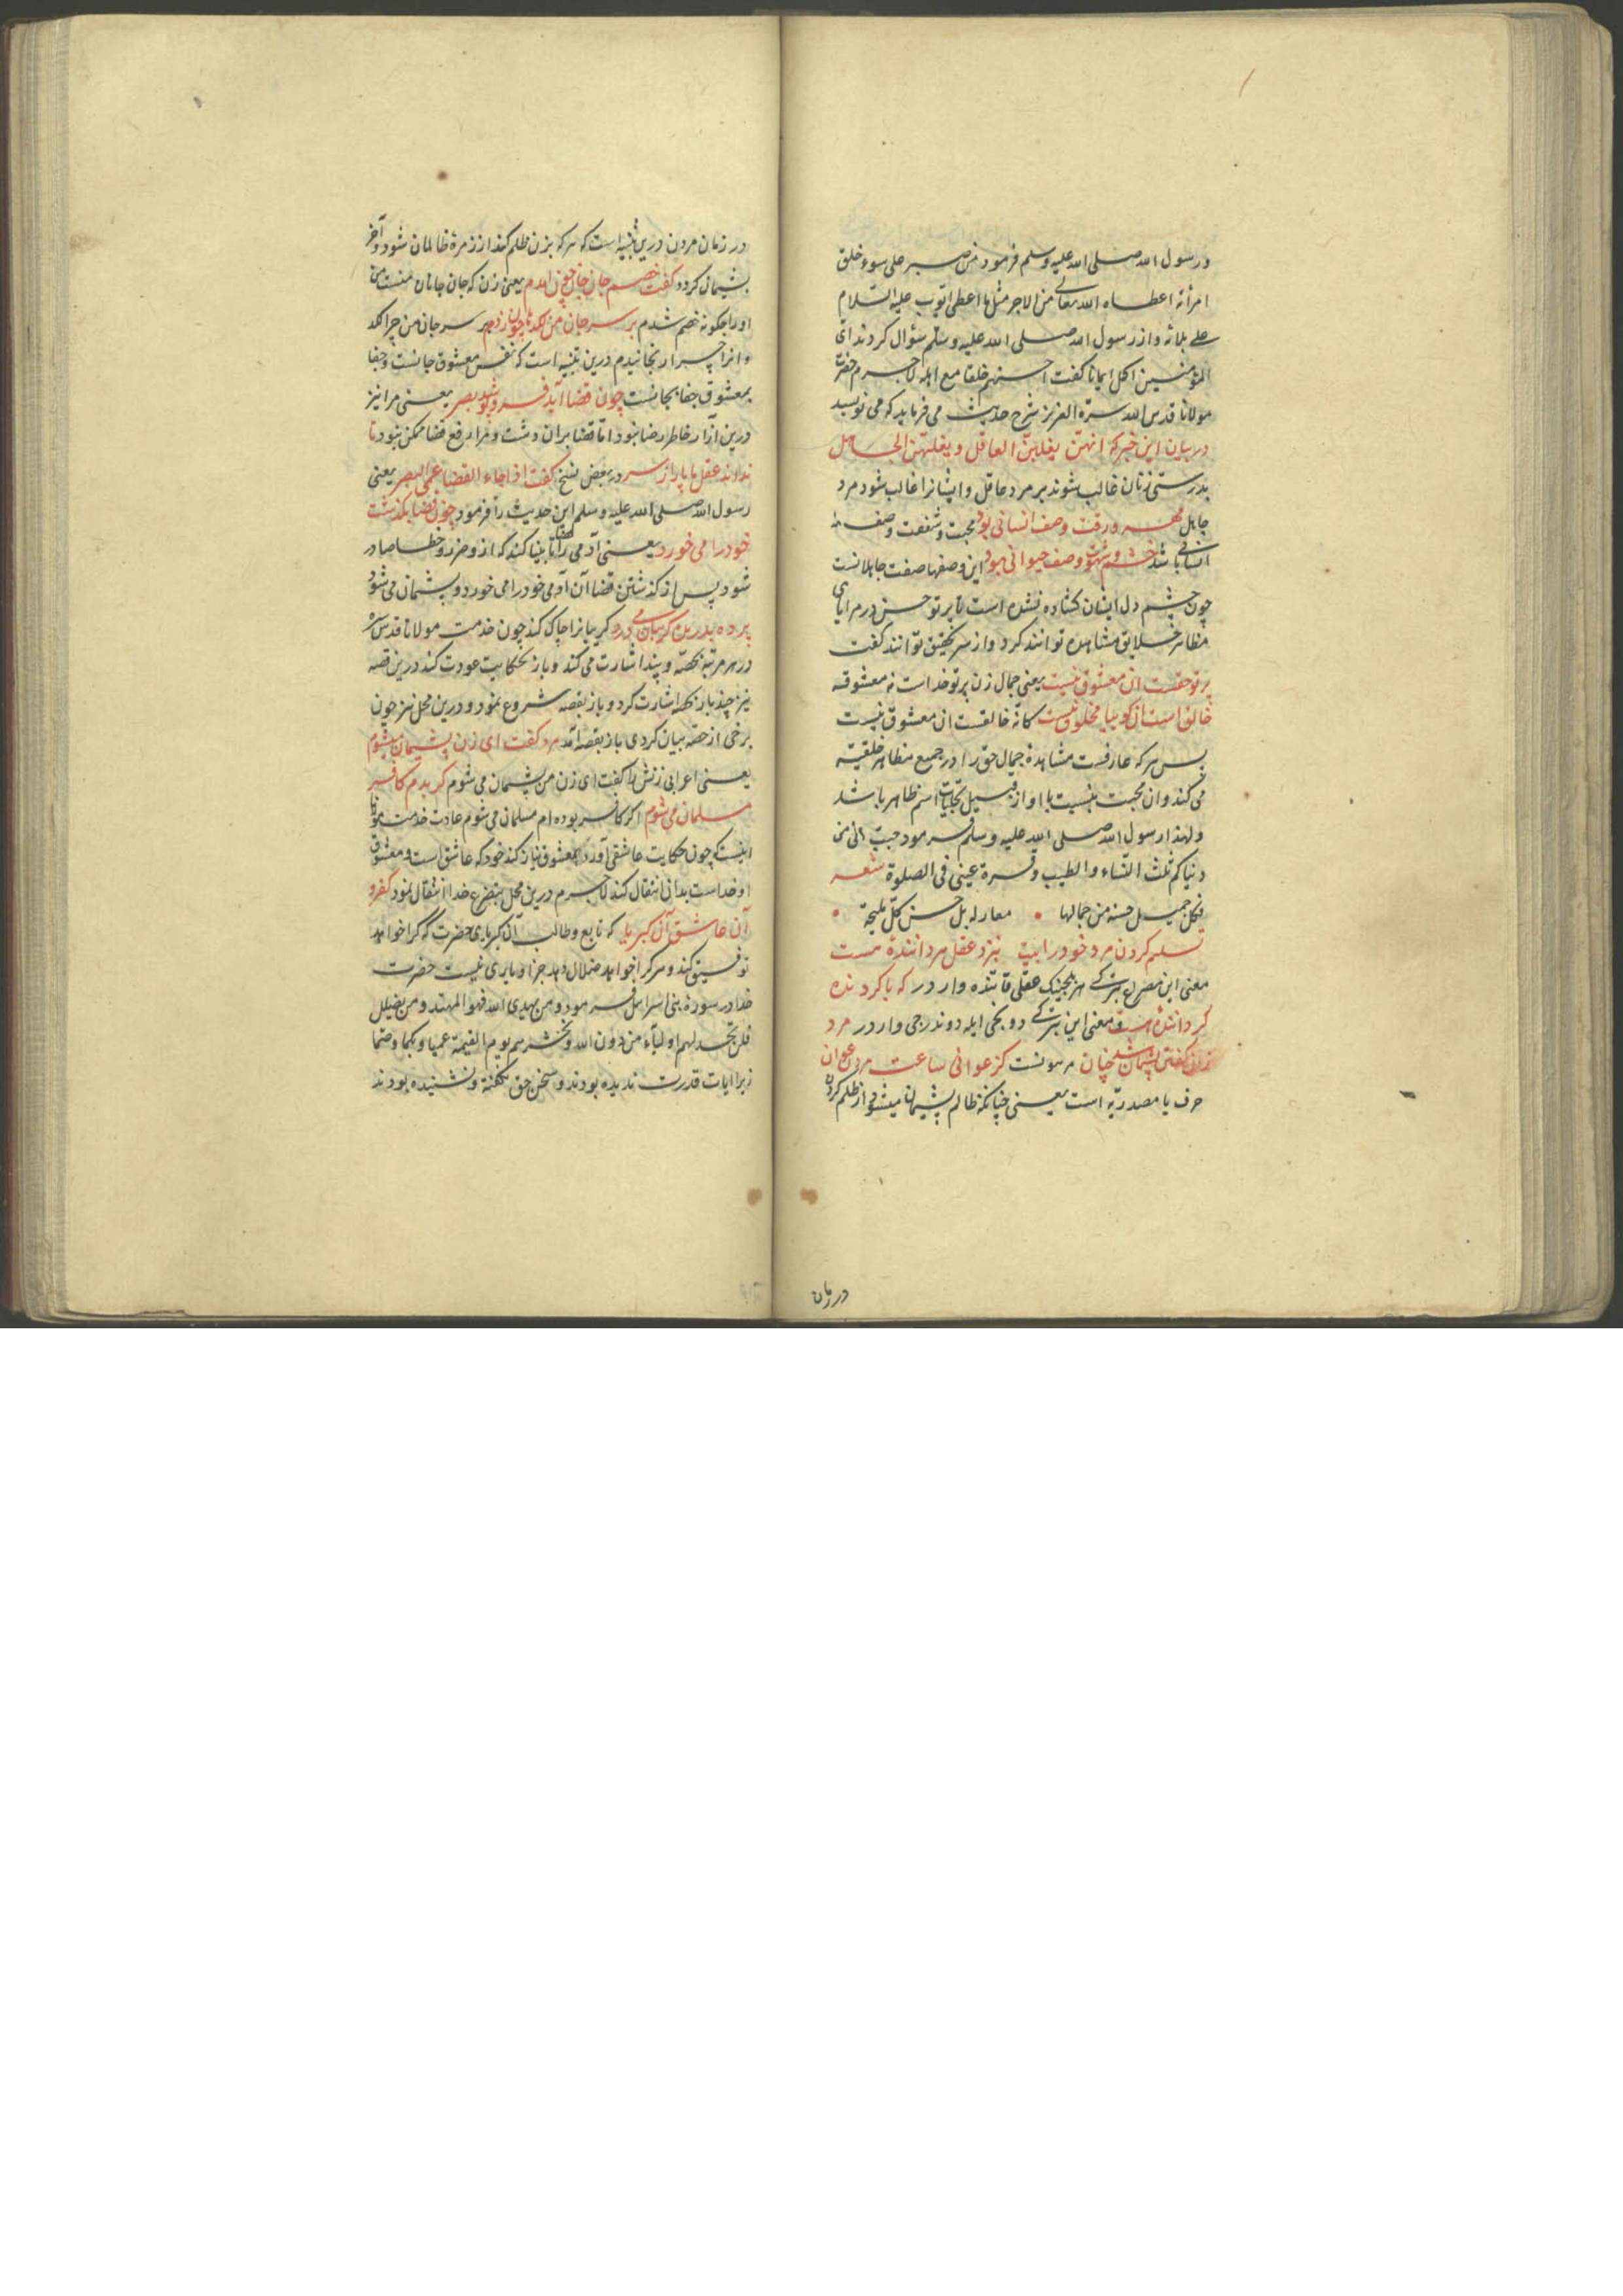 و رسول الله صلی الله علیه وسلم فرمود من صبر علی سوء خلق
امرأته اعطاه الله تعالی من الاجر مثل ما اعطی ایوب علیه السلام
علی بلائه و از رسول الله صلی الله علیه وسلم سؤال کردند ای
المؤمنین اکمل ایمانا کفت احسنهم خلقا مع اهله لاجرم حضرت
مولانا قدس الله سره العزیز شرح حدیث می فرماید که می نویسد
در بیان این خبر که انهن یغلبن العاقل و یغلبهن الجاهل
بدرستی زنان غالب شوند بر مرد عاقل و ایشانرا غالب شود مرد
جاهل مهر و رقت وصف انسانی بود محبت و شفقت وصف
انسانی باشد خشم و شهوت وصف حیوانی بود این وصفها صفت جاهلانست
چون چشم دل ایشان کشاده نشده است تا پرتو حسن در مرایای
مظاهر خلایق مشاهده توانند کرد و از سر تحقیق توانند کفت
پرتو حقست ان معشوق نیست یعنی جمال زن پرتو خداست نه معشوقه
خالق است ان کوییا مخلوق نیست کانه خالقست ان معشوق نیست
پس هر که عارفست مشاهده جمال حق را در جمیع مظاهر خلقیه
می کند و ان محبت بنسبت با او از قبیل تجلیات اسم ظاهر باشد
و لهذا رسول الله صلی الله علیه وسلم فرمود حبب الی من
دنیاکم ثلث النساء و الطیب و قرة عینی فی الصلوة شعر
فکل جمیل حسنه من جمالها • معار له بل حسن کل ملیحة •
تسلیم کردن مرد خود را نزد عقل هر داننده هست
معنی این مصرع بترکی هر عقلی وار در که با کردنده
کرداننده هست و معنی این بترکی دونن ایله دوندرجی وار در مرد
زان کفتن پشیمان شد چنان مرهونست کز عوانی ساعت مردن عوان
حرف یا مصدریه است یعنی چنانکه ظالم پشیمان میشود از ظلم کردن
در زمان
در زمان مردن درین تنبیه است که هر که بزن ظلم کند از زمرهٔ ظالمان شود و آخر
پشیمان کردد کفت خصم جان جان چون آمدم یعنی زن که جان جانان منست من
او را چکونه خصم شدم بر سر جان من لکدها چون زدم بر سر جان من چرا لکد
و انرا چرا رنجانیدم درین تنبیه است که نفس معشوق جانست و جفا
بمعشوق جفا بجانست چون قضا آید فرو پوشد بصر یعنی مرا نیز
درین آزار خاطر رضا نبود اما قضا بران داشت و مرا رفع قضا ممکن نبود تا
نداند عقل ما پا را ز سر در بعض نسخ کفت اذا جاء القضا عمی البصر یعنی
رسول الله صلی الله علیه وسلم این حدیث را فرمود چون قضا بکذشت
خود را می خورد یعنی آدمی را قضا نابینا کند که از و ضرر و خطا صادر
شود پس از کذشتن قضا آن آدمی خود را می خورد و پشیمان می شود
پرده بدریده کریبان می درد کریبانرا چاک کند چون خدمت مولانا قدس سره
در هر مرتبه بحصه و پند اشارت می کند و باز بحکایت عودت کند درین قصه
نیز چند بار بحصه اشارت کرد و باز بقصه شروع نمود و درین محل نیز چون
برخی از حصه بیان کردی باز بقصه آمد مرد کفت ای زن پشیمان میشوم
یعنی اعرابی زنش را کفت ای زن من پشیمان می شوم کر بدم کافر
مسلمان می شوم اکر کافر بوده ام مسلمان می شوم عادت خدمت مولانا
اینست که چون حکایت عاشقی آورد بمعشوق نیاز کند خود که عاشق است و معشوق
او خداست بدان انتقال کند لاجرم درین محل بتضرع خدا انتقال نمود کفر و
آن عاشق آن کبریا که تابع و طالب آن کبریای حضرت که کرا خواهد
توفیق کند و هر کرا خواهد ضلال دهد جز او یاری نیست حضرت
خدا در سورهٔ بنی اسرائیل فرمود و من یهدی الله فهو المهتد و من یضلل
فلن تجد لهم اولیاء من دون الله و نحشرهم یوم القیمة عمیا و بکما و صما
زیرا ایات قدرت ندیده بودند و سخن حق نکفته و نشنیده بودند